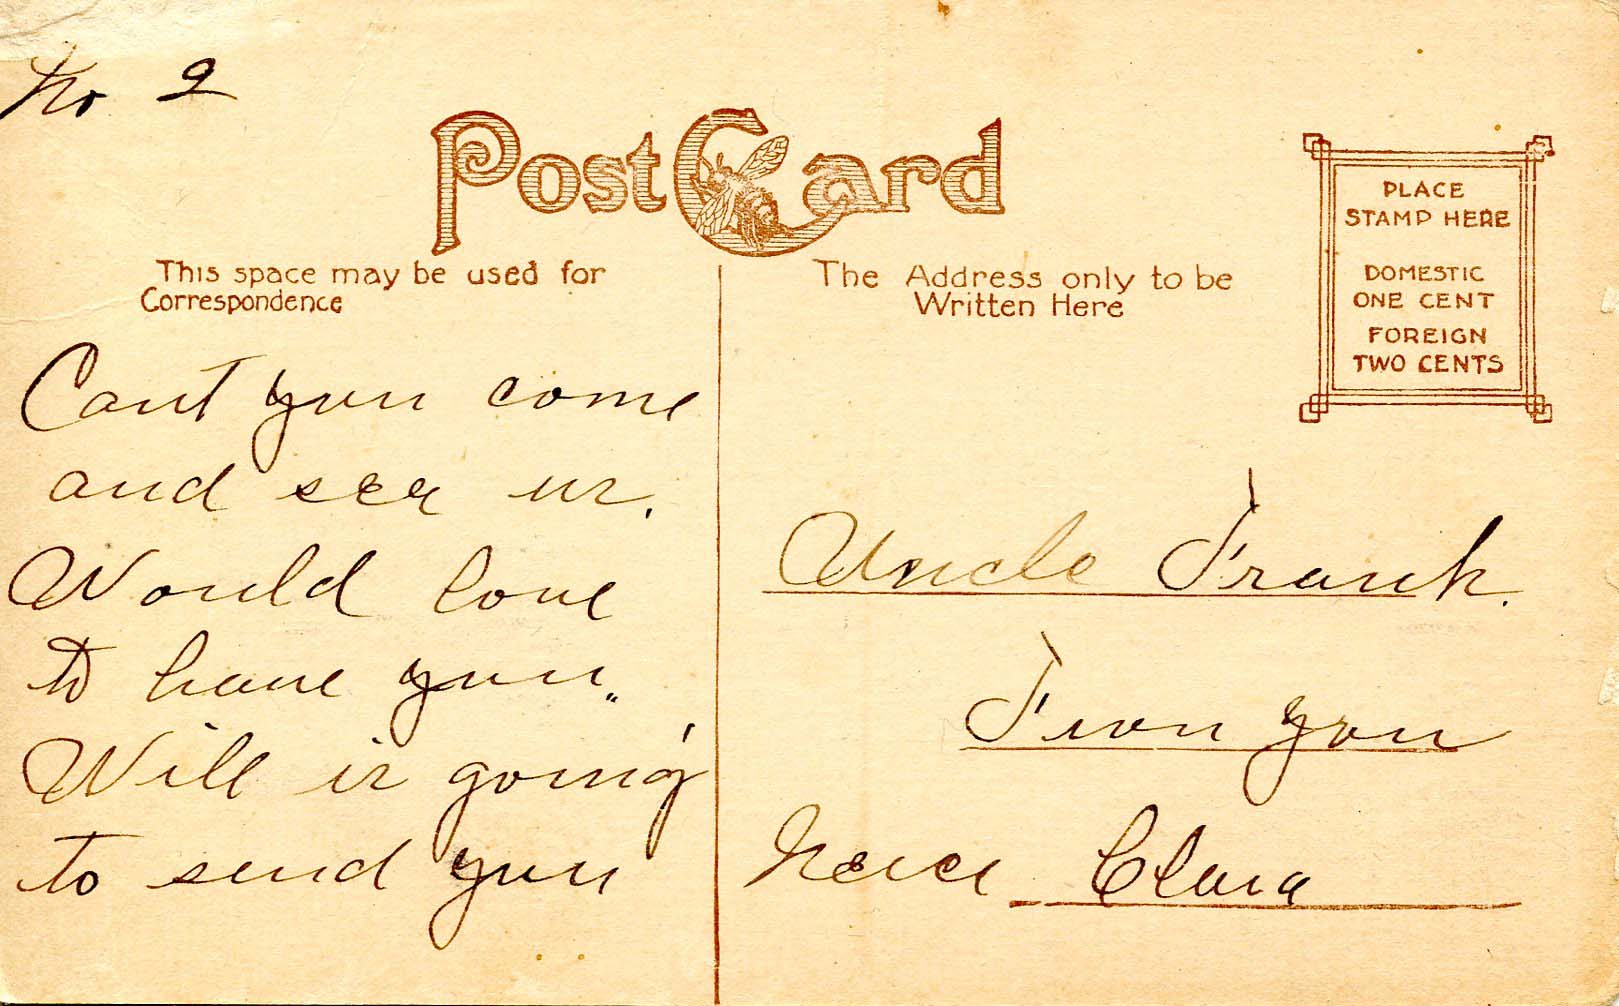 No 2
Post Card
This space may be used for
Correspondence
The Address only to be
Written Here
PLACE
STAMP HERE
DOMESTIC
ONE CENT
FOREIGN
TWO CENTS
Cant you come
and see us.
Would love
to have you.
Will is going
to send you
Uncle Frank.
From you
Neice Clara